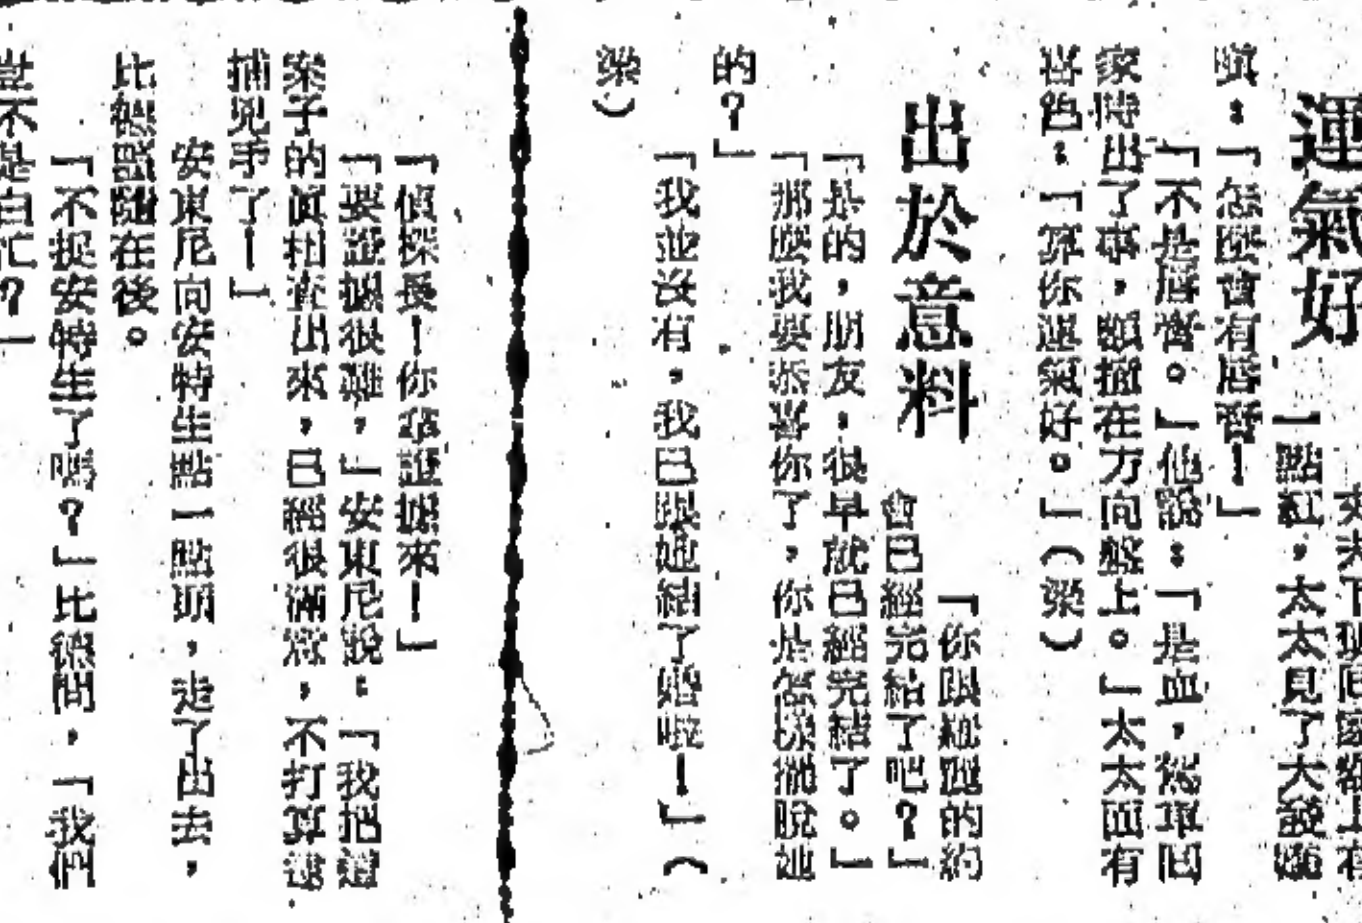 運氣好
丈夫下班回家額上有
一點紅，太太見了大發嬌
嗔：「怎麼會有唇膏！」
「不是唇膏。」他說：「是血，駕車回
家時出了事，額撞在方向盤上。」太太面有
喜色：「算你運氣好。」（梁）
出於意料
「你跟妮妮的約
會已經完結了吧？」
「是的，朋友，很早就已經完結了。」
「那麼我要恭喜你了，你是怎樣擺脫她
的？」
「我並沒有，我已跟她結了婚啦！」（
梁）
「偵探長！你拿證據來！」
「要證據很難，」安東尼說：「我把這
案子的眞相查出來，已經很滿意，不打算逮
捕兇手了！」
安東尼向安特生點一點頭，走了出去，
比德跟隨在後。
「不捉安特生了嗎？」比德問，「我們
豈不是白忙？」